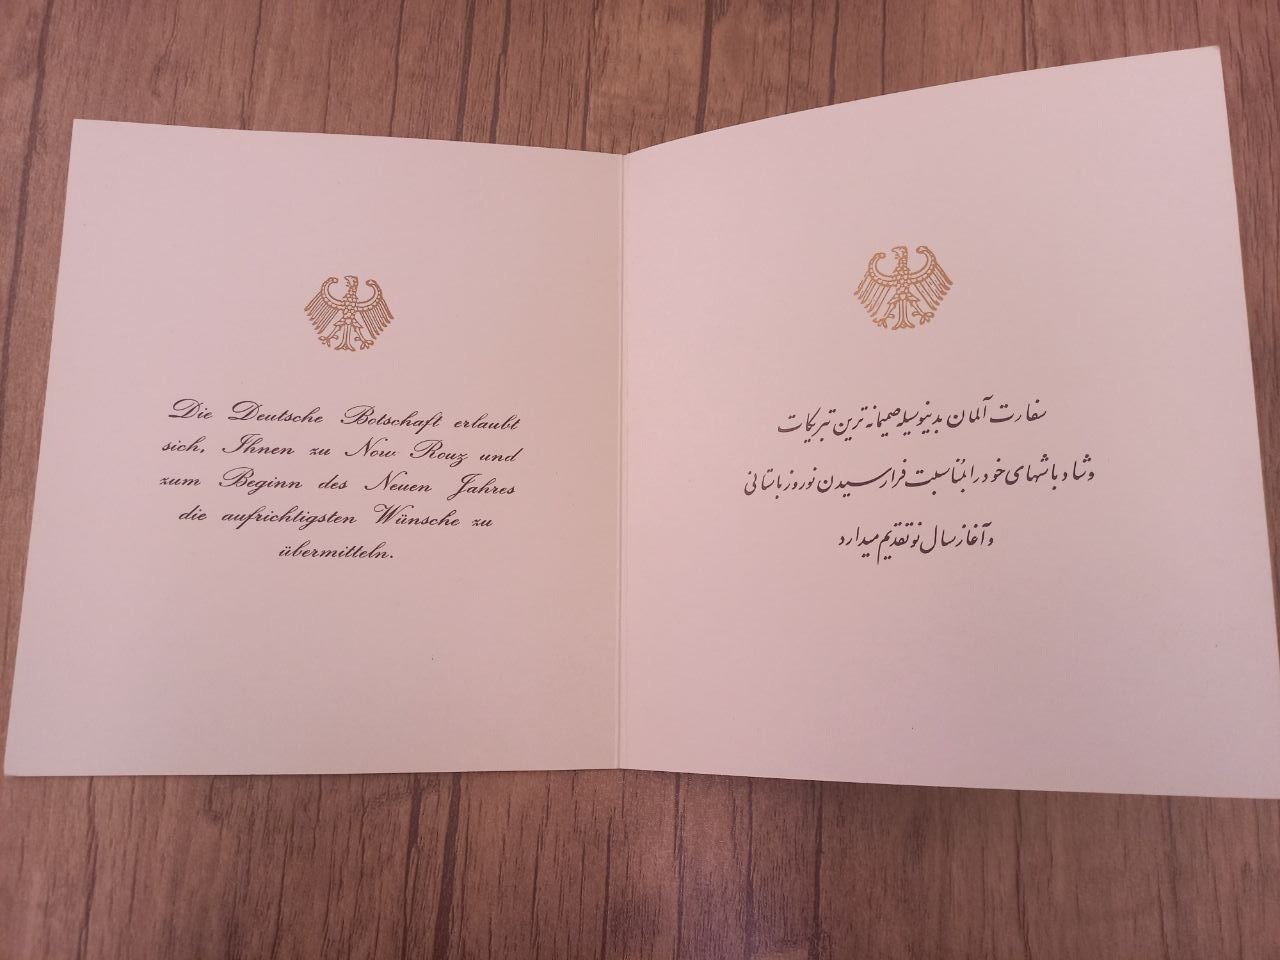 Die Deutsche Botschaft erlaubt
sich, Ihnen zu Now Rouz und
zum Beginn des Neuen Jahres
die aufrichtigsten Wünsche zu
übermitteln.
سفارت آلمان بدینوسیله صمیمانه ترین تبریکات
و شاد باشهای خود را بمناسبت فرا رسیدن نوروز باستانی
و آغاز سال نو تقدیم میدارد